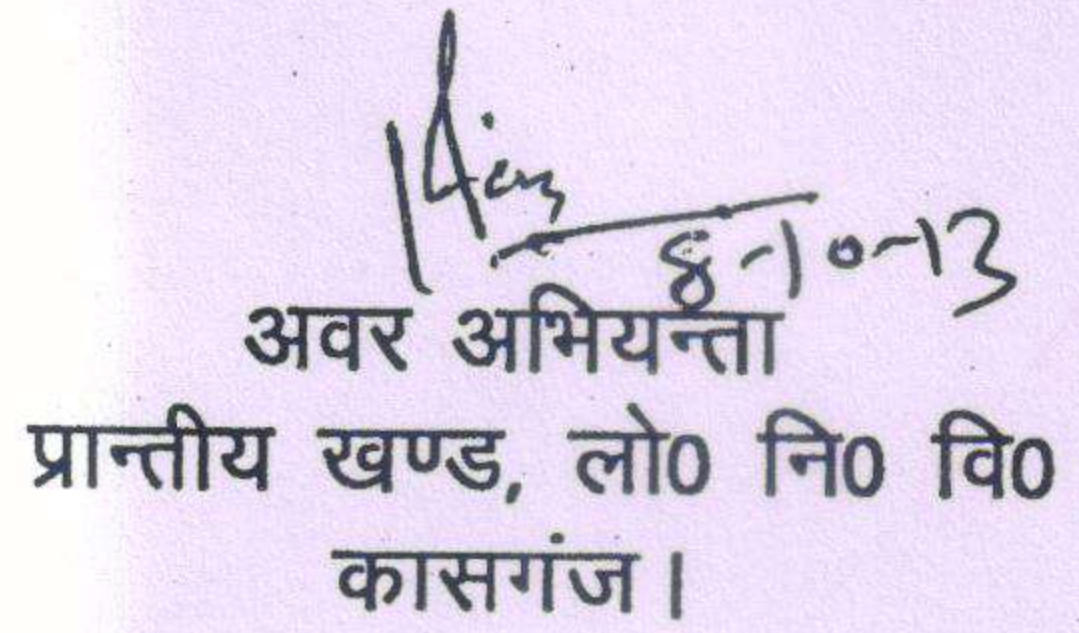 8-10-13
अवर अभियन्ता
प्रान्तीय खण्ड, लो0 नि0 वि0
कासगंज।